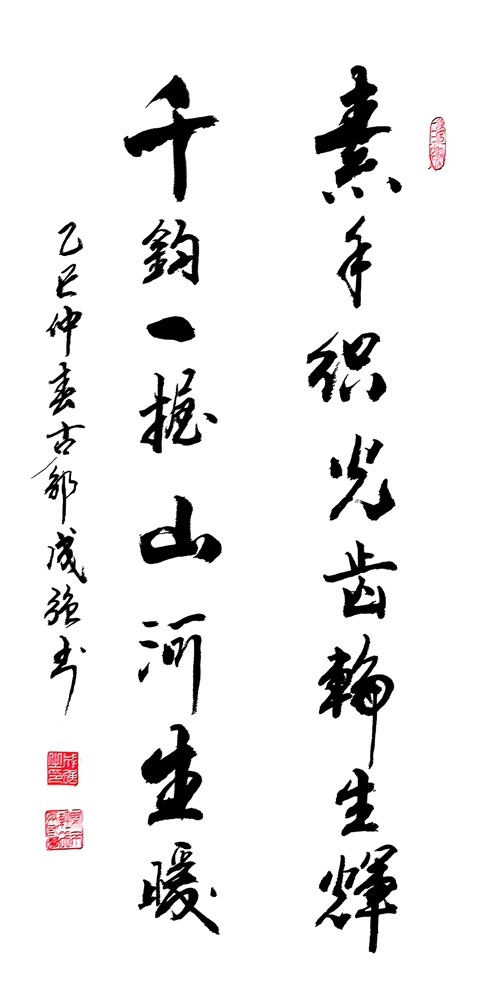 素手织光齿轮生辉
千钧一握山河生暖
乙巳仲春古邹成强书